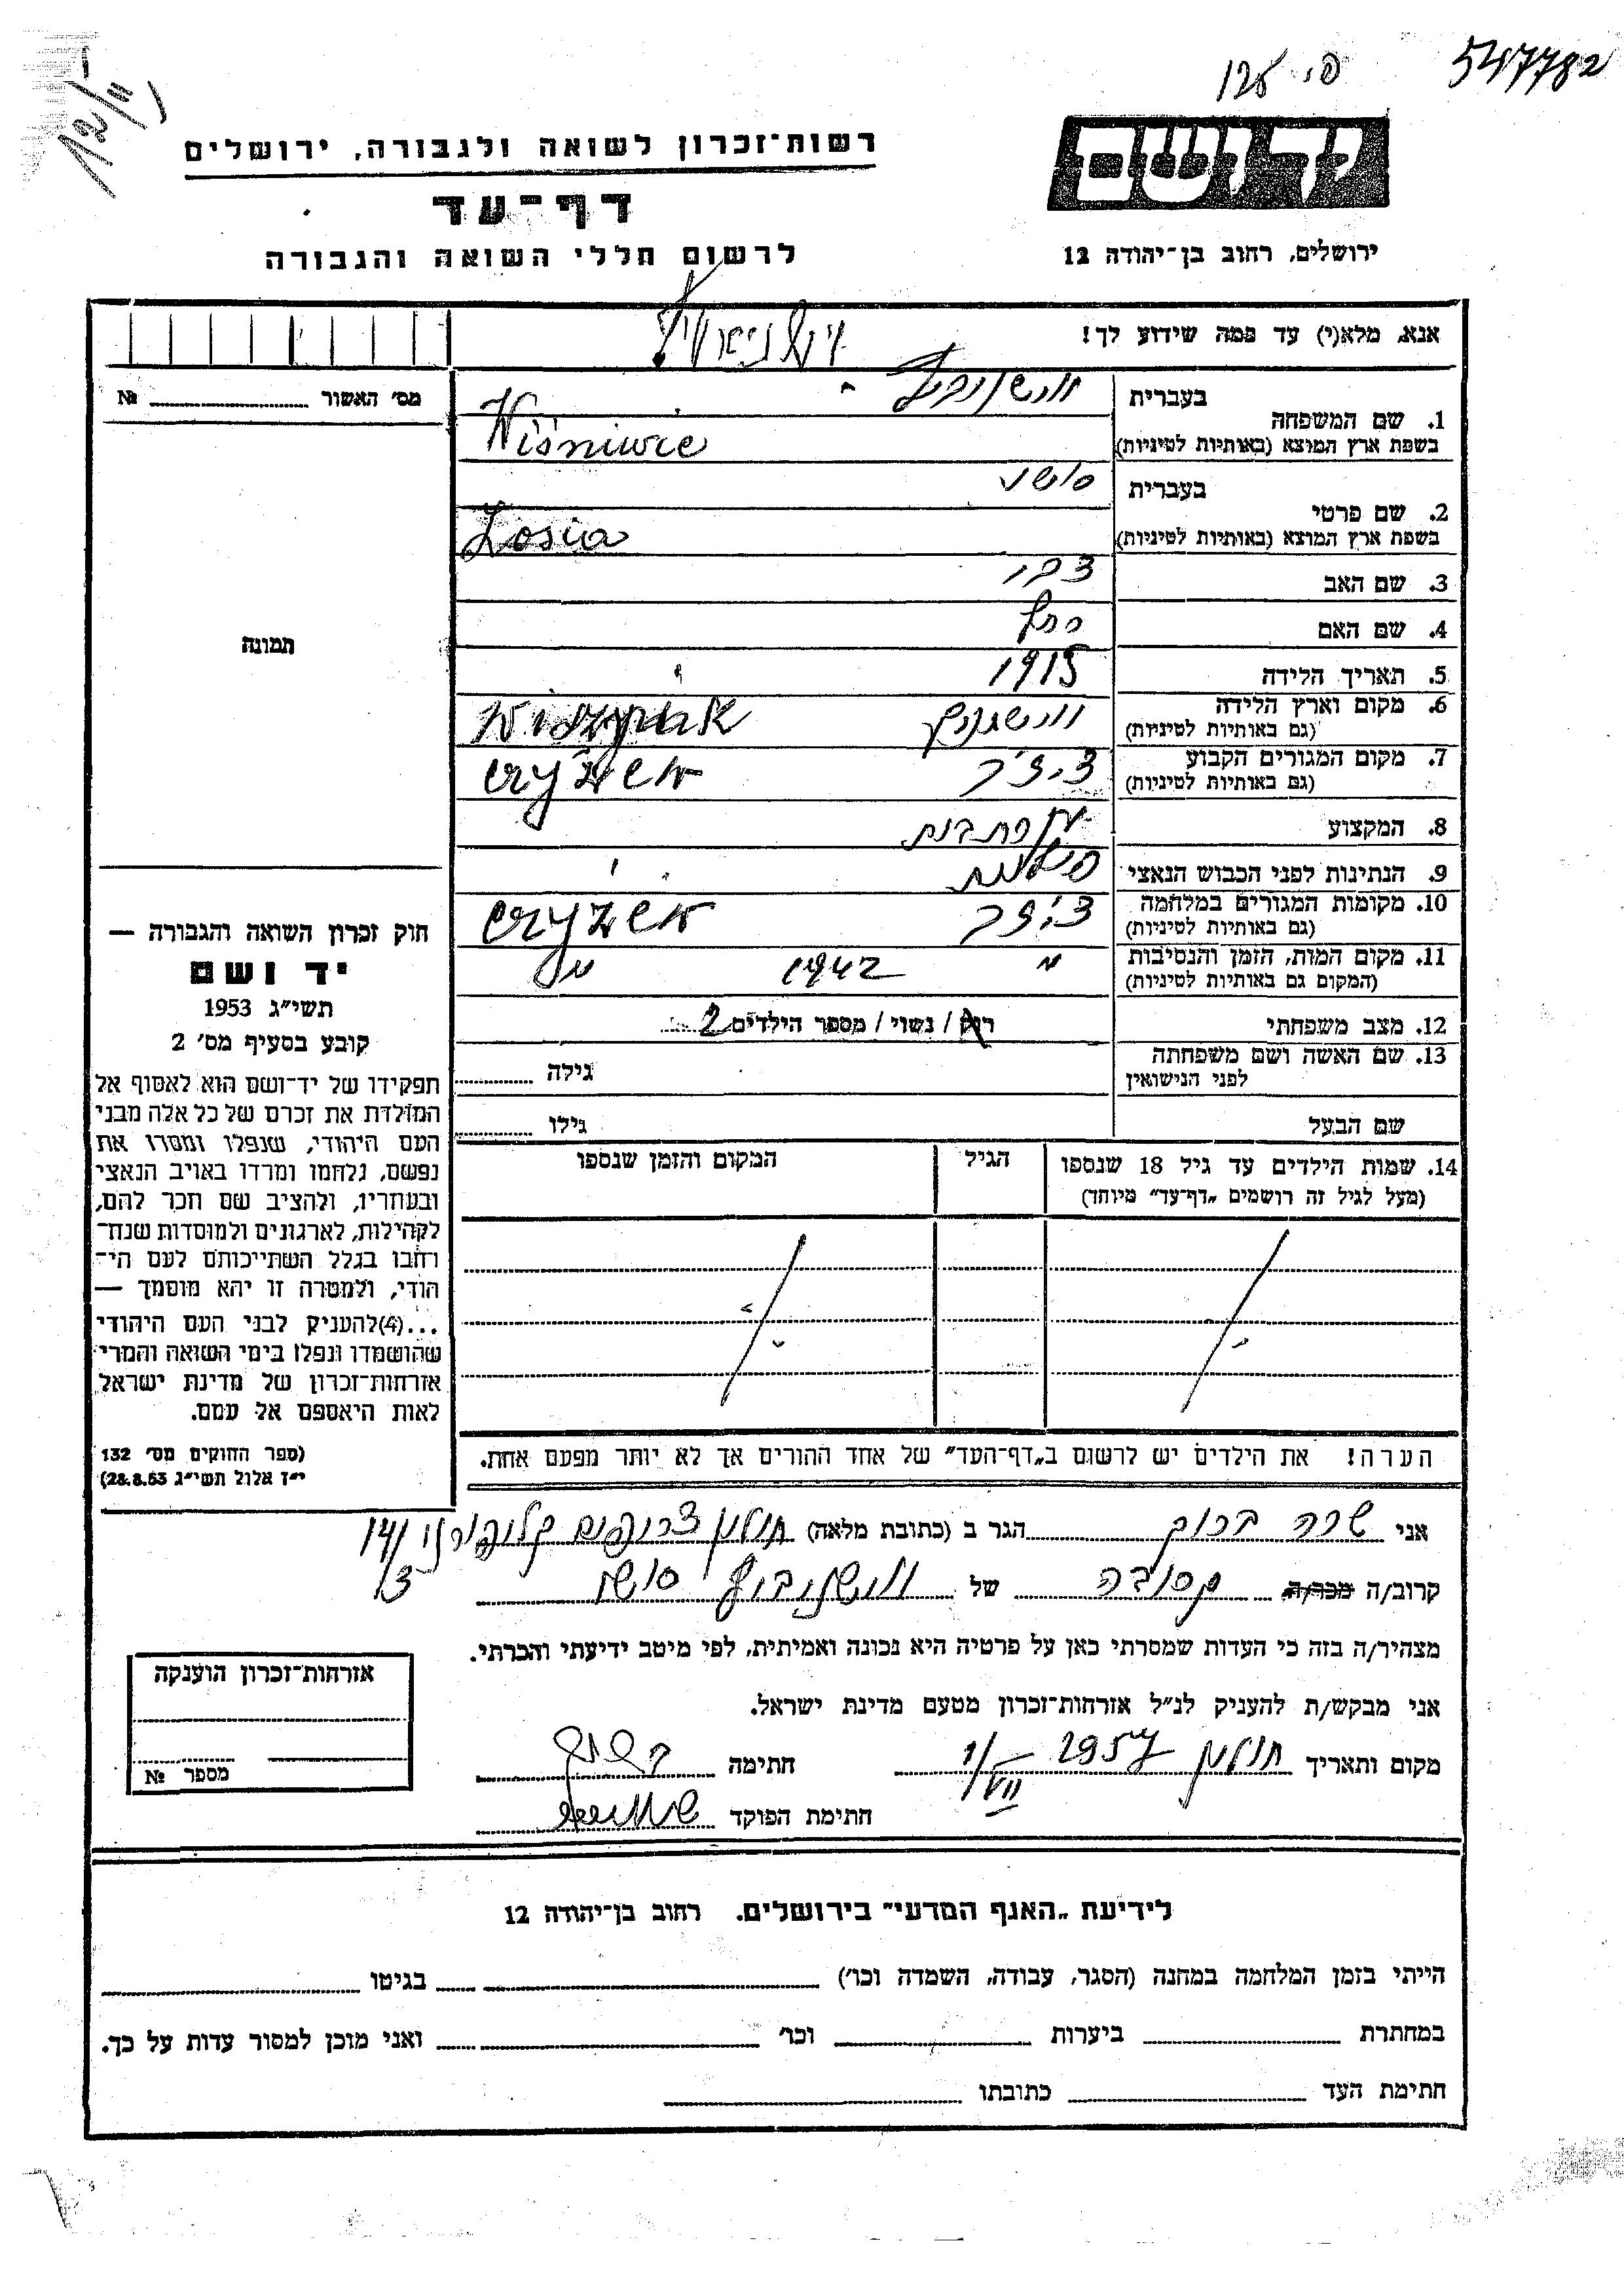 547782
רשות־זכרון לשואה ולגבורה, ירושלים
יד ושם
דף־עד
לרשום חללי השואה והגבורה
ירושלים, רחוב בן־יהודה 12
אנא, מלא(י) עד כמה שידוע לך!
מס׳ האשור № 
1. שם המשפחה בעברית
בשפת ארץ המוצא (באותיות לטיניות) Wiśniwie
2. שם פרטי בעברית
בשפת ארץ המוצא (באותיות לטיניות) Zosia
3. שם האב צבי
4. שם האם רחל
5. תאריך הלידה 1915
6. מקום וארץ הלידה
(גם באותיות לטיניות)
7. מקום המגורים הקבוע
(גם באותיות לטיניות)
8. המקצוע
9. הנתינות לפני הכבוש הנאצי
10. מקומות המגורים במלחמה
(גם באותיות לטיניות)
11. מקום המות, הזמן והנסיבות 1942
(המקום גם באותיות לטיניות)
12. מצב משפחתי רוק / נשוי / מספר הילדים 2
13. שם האשה ושם משפחתה
לפני הנישואין גילה
שם הבעל גילו
14. שמות הילדים עד גיל 18 שנספו הגיל המקום והזמן שנספו
(מעל לגיל זה רושמים „דף־עד״ מיוחד)
הערה! את הילדים יש לרשום ב„דף־העד״ של אחד ההורים אך לא יותר מפעם אחת.
תמונה
חוק זכרון השואה והגבורה —
יד ושם
תשי״ג 1953
קובע בסעיף מס׳ 2
תפקידו של יד־ושם הוא לאסוף אל
המולדת את זכרם של כל אלה מבני
העם היהודי, שנפלו ומסרו את
נפשם, נלחמו ומרדו באויב הנאצי
ובעוזריו, ולהציב שם וזכר להם,
לקהילות, לארגונים ולמוסדות שנח־
רבו בגלל השתייכותם לעם הי־
הודי, ולמטרה זו יהא מוסמך —
...(4)להעניק לבני העם היהודי
שהושמדו ונפלו בימי השואה והמרי
אזרחות־זכרון של מדינת ישראל
לאות היאספם אל עמם.
(ספר החוקים מס׳ 132
י״ז אלול תשי״ג 28.8.53)
אני שרה ברוק הגר ב (כתובת מלאה) חולון
קרוב/ה מכר/ה של
מצהיר/ה בזה כי העדות שמסרתי כאן על פרטיה היא נכונה ואמיתית, לפי מיטב ידיעתי והכרתי.
אני מבקש/ת להעניק לנ״ל אזרחות־זכרון מטעם מדינת ישראל.
מקום ותאריך חולון 1957 1/VII חתימה
חתימת הפוקד
אזרחות־זכרון הוענקה
מספר №
לידיעת „האגף המדעי״ בירושלים, רחוב בן־יהודה 12
הייתי בזמן המלחמה במחנה (הסגר, עבודה, השמדה וכו׳) בגיטו
במחתרת ביערות וכו׳ ואני מוכן למסור עדות על כך.
חתימת העד כתובתו